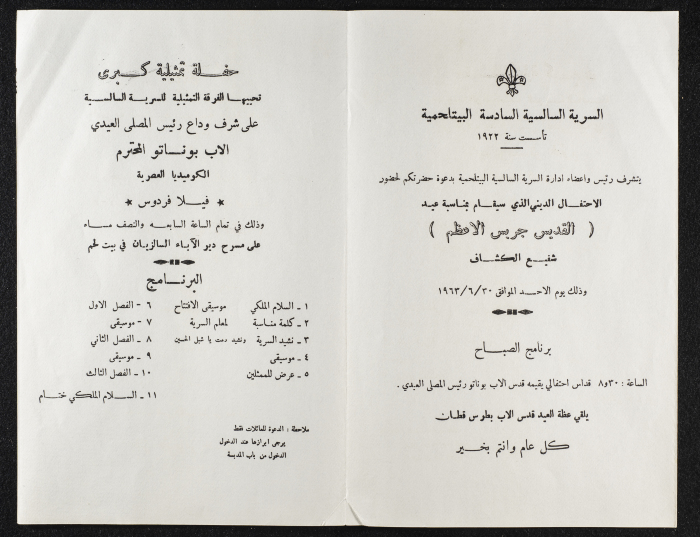 السرية السالسية السادسة البيتلحمية
تأسست سنة ١٩٢٢
يتشرف رئيس واعضاء ادارة السرية السالسية البيتلحمية بدعوة حضرتكم لحضور
الاحتفال الديني الذي سيقام بمناسبة عيد
( القديس جريس الاعظم )
شفيع الكشاف
وذلك يوم الاحد الموافق ١٩٦٣/٦/٣٠
برنامج الصباح
الساعة : ٨و٣٠ قداس احتفالي يقيمه قدس الاب بوناتو رئيس المصلى العيدي .
يلقي عظة العيد قدس الاب بطرس قطان
كل عام وانتم بخير
حفلة تمثيلية كبرى
تحييها الفرقة التمثيلية للسرية السالسية
على شرف وداع رئيس المصلى العيدي
الاب بوناتو المحترم
الكوميديا العصرية
★ فيلا فردوس ★
وذلك في تمام الساعة السابعة والنصف مساء
على مسرح دير الآباء السالزيان في بيت لحم
البرنامج
١ - السلام الملكي موسيقى الافتتاح
٢ - كلمة مناسبة لمعلم السرية
٣ - نشيد السرية ونشيد دمت يا شبل الحسين
٤ - موسيقى
٥ - عرض للممثلين
٦ - الفصل الاول
٧ - موسيقى
٨ - الفصل الثاني
٩ - موسيقى
١٠ - الفصل الثالث
١١ - السلام الملكي ختام
ملاحظة : الدعوة للعائلات فقط
يرجى ابرازها عند الدخول
الدخول من باب المدبسة